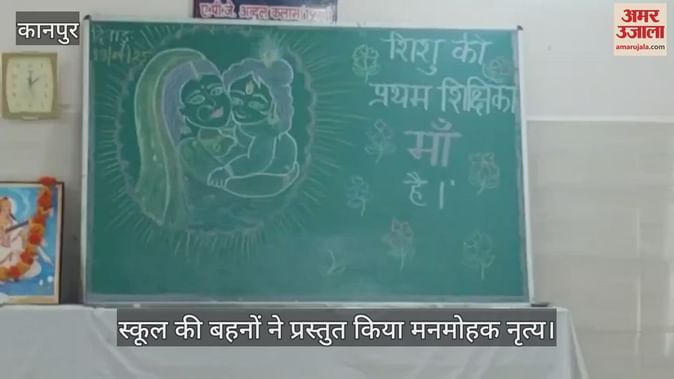 कानपुर
ए.पी.जे. अब्दुल कलाम
अमर उजाला
amarujala.com
शिशु की
प्रथम शिक्षिका
माँ
है।
स्कूल की बहनों ने प्रस्तुत किया मनमोहक नृत्य।